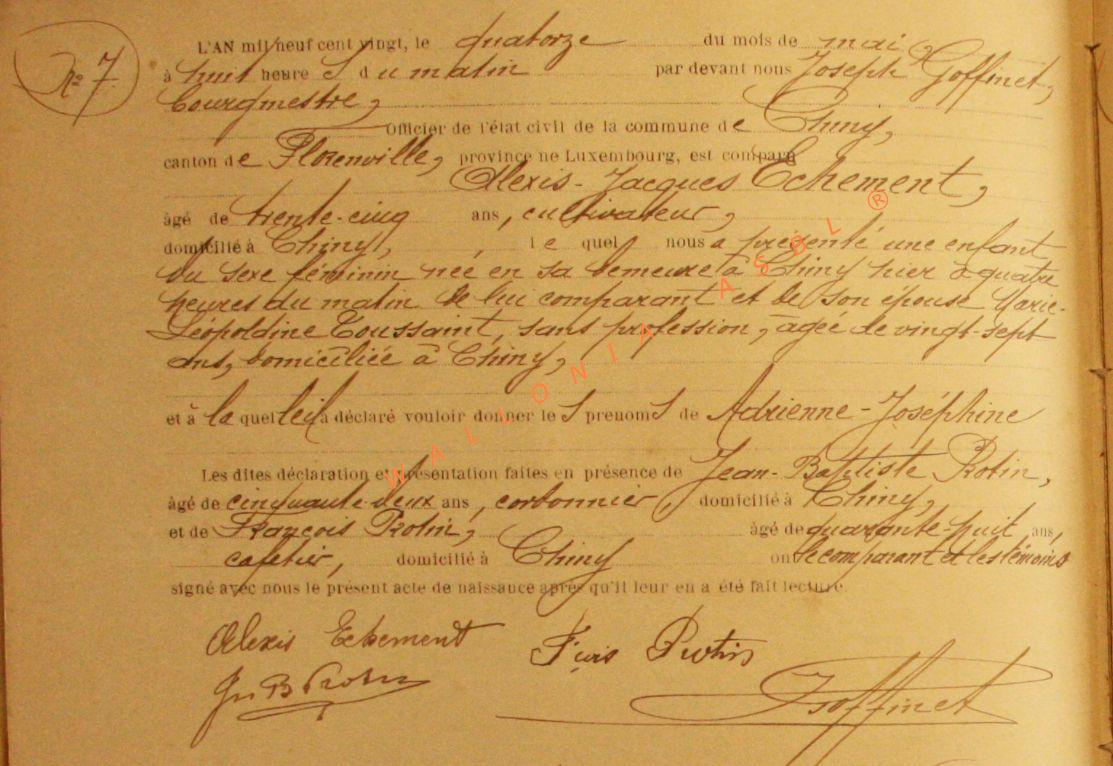 N° 7
L'AN mil neuf cent vingt, le quatorze du mois de mai
à huit heure s du matin par devant nous Joseph Goffinet,
bourgmestre,
Officier de l'état civil de la commune de Chiny,
canton de Florenville, province ne Luxembourg, est comparu
Alexis-Jacques Echement,
âgé de trente-cinq ans, cultivateur,
domicilié à Chiny, le quel nous a présenté une enfant
du sexe féminin née en sa demeure à Chiny hier à quatre
heures du matin de lui comparant et de son épouse Marie-
Léopoldine Toussaint, sans profession, âgée de vingt-sept
ans, domiciliée à Chiny,
et à la quelle il a déclaré vouloir donner le s prénom s de Adrienne-Joséphine
Les dites déclaration et présentation faites en présence de Jean-Baptiste Protin,
âgé de cinquante-deux ans, cordonnier, domicilié à Chiny,
et de François Protin, âgé de quarante-huit ans,
cafetier, domicilié à Chiny ont le comparant et les témoins
signé avec nous le présent acte de naissance après qu'il leur en a été fait lecture
Alexis Echement Fçois Protin
Jn B Protin JGoffinet
WALLONIA ASBL ®